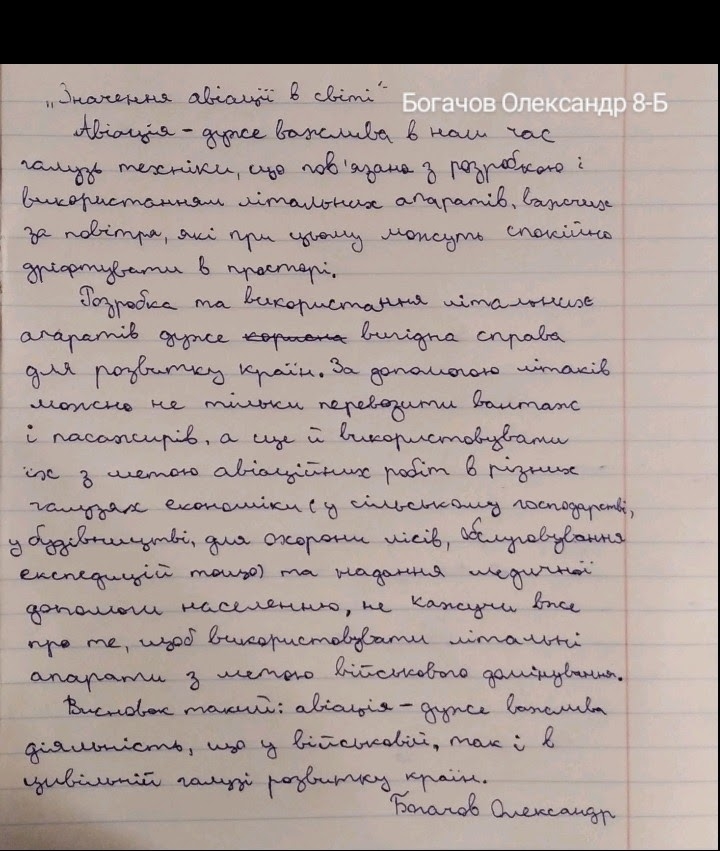 „Значення авіації в світі"
Богачов Олександр 8-Б
Авіація - дуже важлива в наш час
галузь техніки, що пов'язана з розробкою і
використанням літальних апаратів, важчих
за повітря, які при цьому можуть спокійно
дріфтувати в просторі.
Розробка та використання літальних
апаратів дуже корисна вигідна справа
для розвитку країн. За допомогою літаків
можно не тільки перевозити вантаж
і пасажирів, а ще й використовувати
їх з метою авіаційних робіт в різних
галузях економіки (у сільському господарстві,
у будівництві, для охорони лісів, обслуговування
експедицій тощо) та надання медичної
допомоги населенню, не кажучи вже
про те, щоб використовувати літальні
апарати з метою військового домінування.
Висновок такий: авіація - дуже важлива
діяльність, що у військовій, так і в
цивільній галузі розвитку країн.
Богачов Олександр